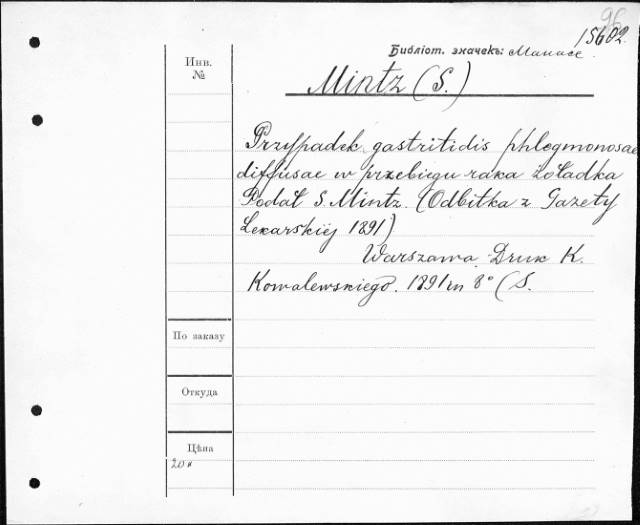 96
15602.
Библіот. значекъ: Манасе.
Инв.
№
Mintz (S.)
Przypadek gastritidis phlegmonosae
diffusae w przebiegu raka żoładka
Podał S. Mintz. (Odbitka z Gazety
Lekarskiéj 1891)
Warszawa. Druk K.
Kowalewskiego. 1891 in 8° (S.
По заказу
Откуда
Цѣна
20 к